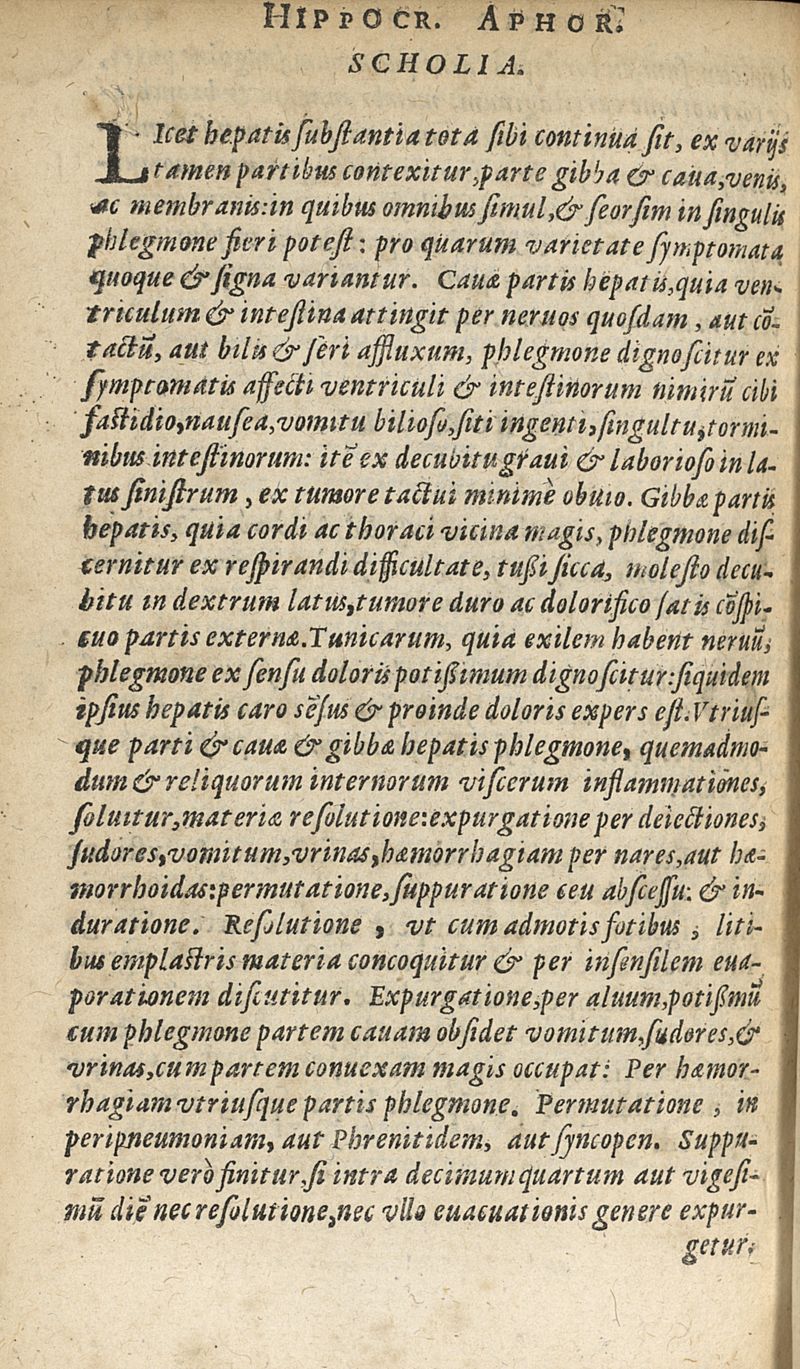 HIPPOCR. APHOR.
SCHOLIA.
LIcet hepatis ſubſtantia tota ſibi continua ſit, ex varijs
tamen partibus contexitur, parte gibba & caua, venis,
ac membranis: in quibus omnibus ſimul, & ſeorſim in ſingulis
phlegmone fieri poteſt: pro quarum varietate ſymptomata
quoque & ſigna variantur. Cauæ partis hepatis, quia ven-
triculum & inteſtina attingit per neruos quoſdam, aut cō-
tactū, aut bilis & ſeri affluxum, phlegmone dignoſcitur ex
ſymptomatis affecti ventriculi & inteſtinorum nimirū cibi
faſtidio, nauſea, vomitu bilioſo, ſiti ingenti, ſingultu, tormi-
nibus inteſtinorum: itē ex decubitu graui & laborioſo in la-
tus ſiniſtrum, ex tumore tactui minimè obuio. Gibbæ partis
hepatis, quia cordi ac thoraci vicina magis, phlegmone diſ-
cernitur ex reſpirandi difficultate, tußi ſicca, moleſto decu-
bitu in dextrum latus, tumore duro ac dolorifico ſatis cōſpi-
cuo partis externæ. Tunicarum, quia exilem habent neruū,
phlegmone ex ſenſu doloris potißimum dignoſcitur: ſiquidem
ipſius hepatis caro sēſus & proinde doloris expers eſt. Vtriuſ-
que parti & cauæ & gibbæ hepatis phlegmone, quemadmo-
dum & reliquorum internorum viſcerum inflammationes,
ſoluitur, materiæ reſolutione: expurgatione per deiectiones,
ſudores, vomitum, vrinas, hæmorrhagiam per nares, aut hæ-
morrhoidas: permutatione, ſuppuratione ceu abſceſſu: & in-
duratione. Reſolutione, vt cum admotis fotibus, liti-
bus emplaſtris materia concoquitur & per inſenſilem eua-
porationem diſcutitur. Expurgatione, per aluum, potißimū
cum phlegmone partem cauam obſidet vomitum, ſudores, &
vrinas, cum partem conuexam magis occupat: Per hæmor-
rhagiam vtriuſque partis phlegmone. Permutatione, in
peripneumoniam, aut Phrenitidem, aut ſyncopen. Suppu-
ratione verò finitur, ſi intra decimum quartum aut vigeſi-
mū diē nec reſolutione, nec vllo euacuationis genere expur-
getur.